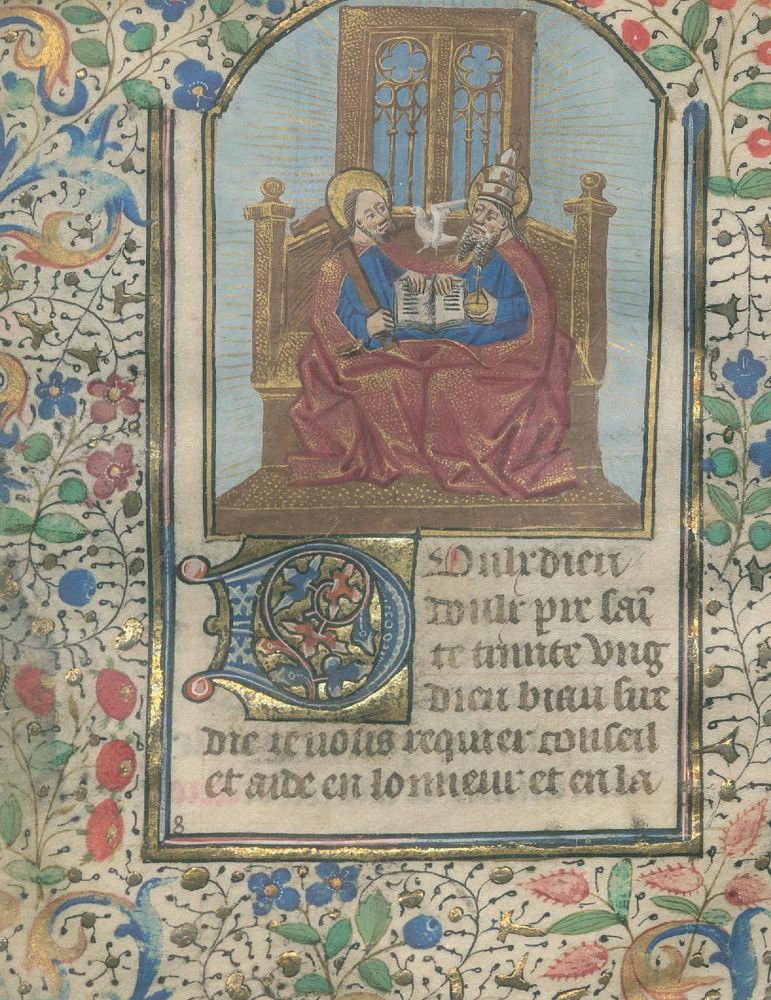 Doulz dieu
doulz pere sai
te trinite vng
dieu biau sire
die ie vous requier conseil
et aide en lonneur et en la
8